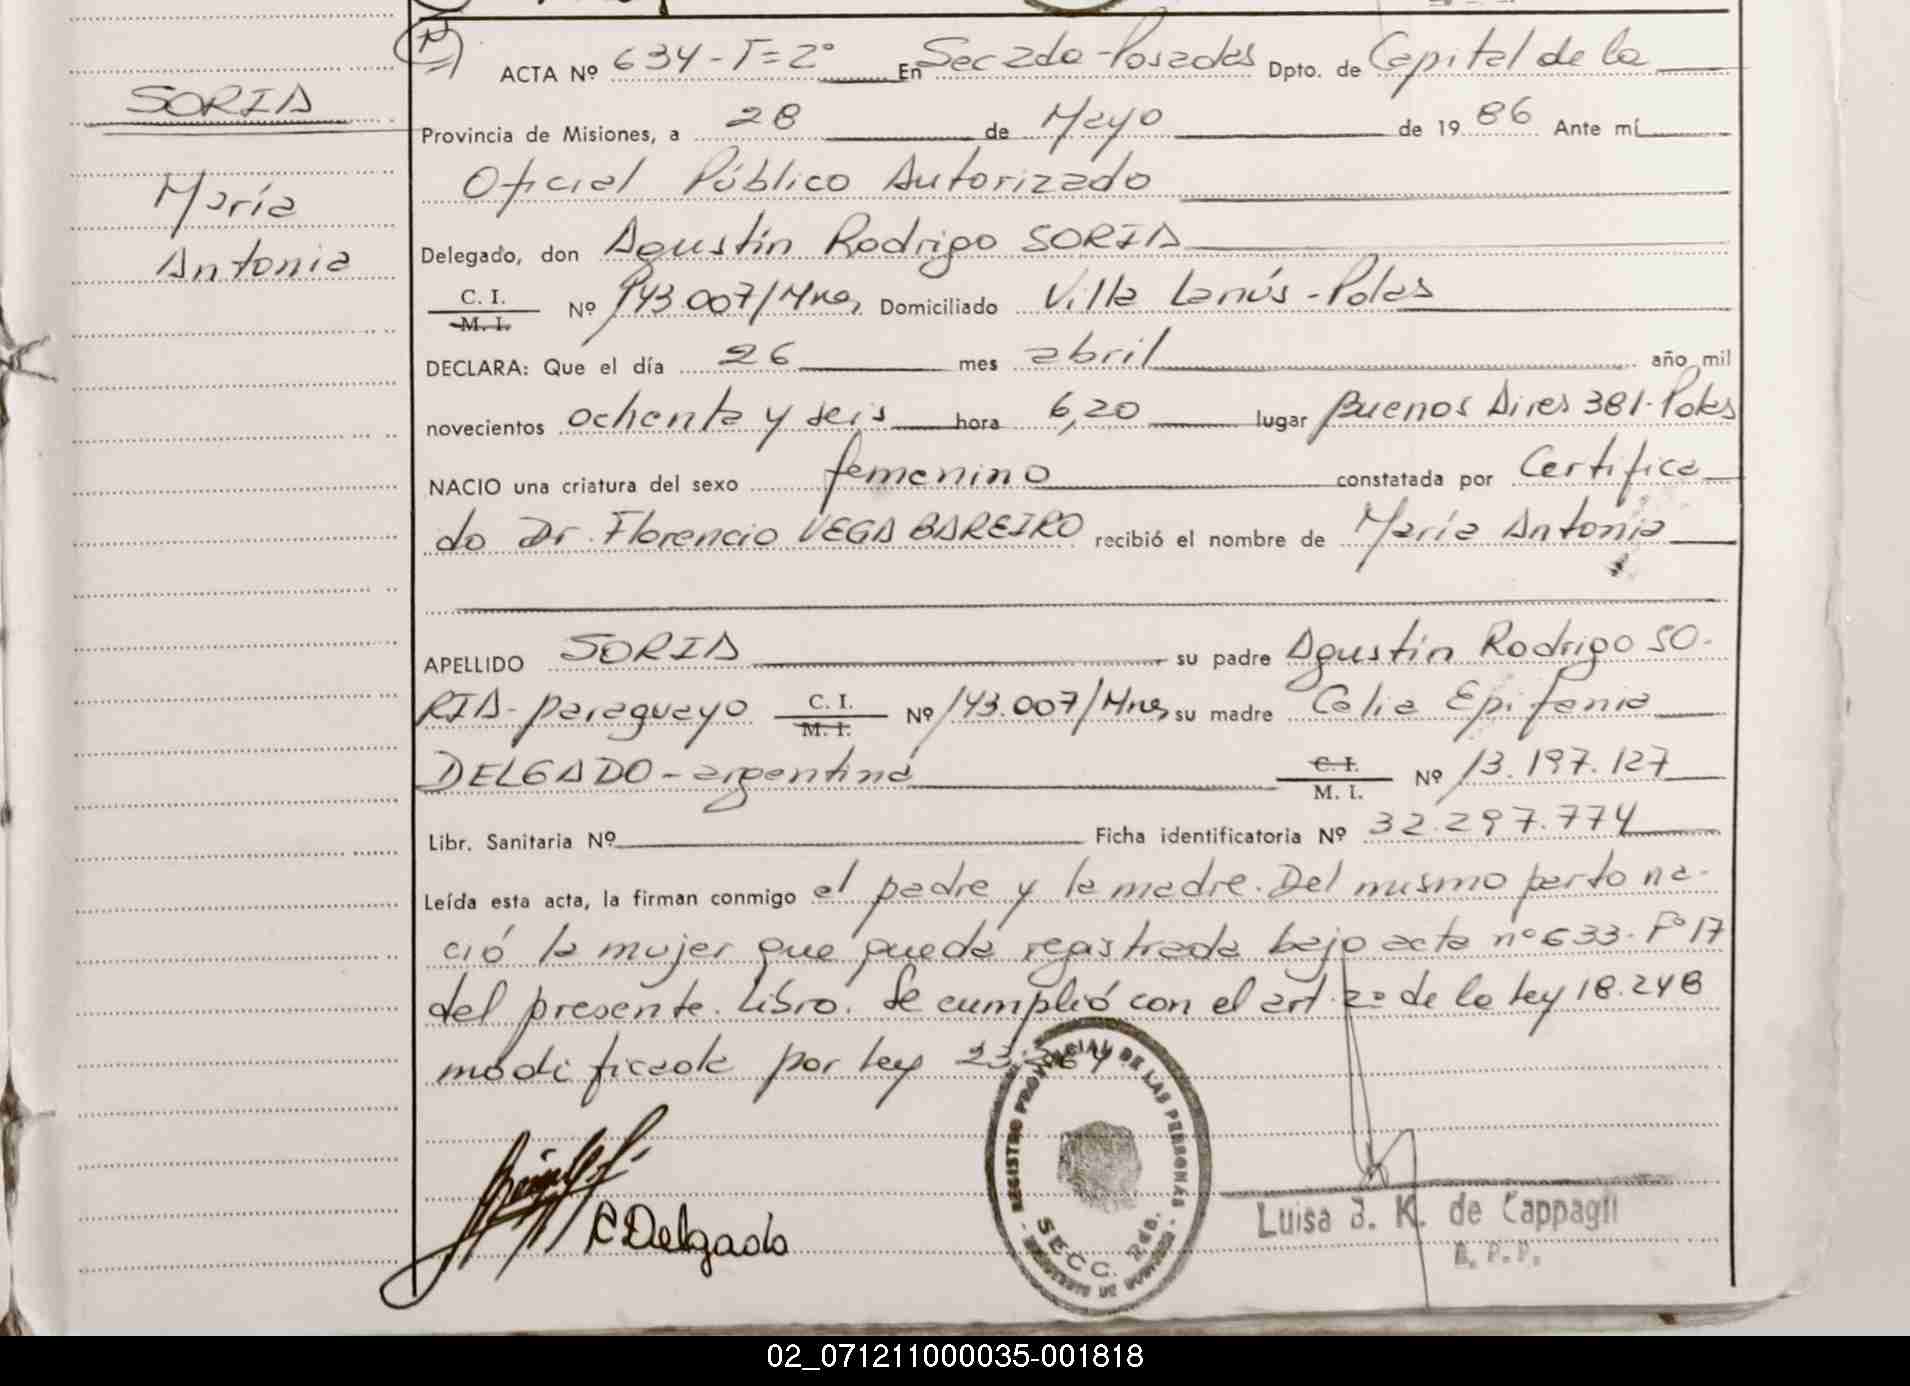 N
ACTA Nº 634 - T=2º En Sec 2da - Posadas Dpto. de Capital de la
SORIA
Provincia de Misiones, a 28 de Mayo de 1986 Ante mí
Oficial Público Autorizado
María
Antonia
Delegado, don Agustín Rodrigo SORIA
C. I. M. I. Nº 143.007/Mnes, Domiciliado Villa Lanús - Pdas
DECLARA: Que el día 26 mes abril año mil
novecientos ochenta y seis hora 6,20 lugar Buenos Aires 381 - Pdas
NACIO una criatura del sexo femenino constatada por Certifica
do Dr. Florencio VEGA BAREIRO recibió el nombre de María Antonia
APELLIDO SORIA su padre Agustín Rodrigo SO-
RIA - paraguayo C. I. M. I. Nº 143.007/Mnes su madre Celia Epifania
DELGADO - argentina C. I. M. I. Nº 13.197.127
Libr. Sanitaria Nº Ficha identificatoria Nº 32.297.774
Leída esta acta, la firman conmigo el padre y la madre. Del mismo parto na-
ció la mujer que queda registrada bajo acta nº 633 - Fº 17
del presente Libro. Se cumplió con el art. 2º de la ley 18.248
modificada por ley 23.264
C Delgado
REGISTRO PROVINCIAL DE LAS PERSONAS
SECC. 2da.
Luisa B. K. de Cappagli
02_071211000035-001818